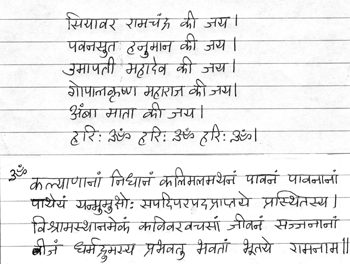 सियावर रामचंद्र की जय।
पवनसुत हनुमान की जय।
उमापती महादेव की जय।
गोपालकृष्ण महाराज की जय।
अंबा माता की जय।
हरिः ॐ हरिः ॐ हरिः ॐ।
ॐ कल्याणानां निधानं कलिमलमथनं पावनं पावनानां
पाथेयं यन्मुमुक्षोः सपदिपरपदप्राप्तये प्रस्थितस्य।
विश्रामस्थानमेकं कविवरवचसां जीवनं सज्जनानां
बीजं धर्मद्रुमस्य प्रभवतु भवतां भूतये रामनाम॥